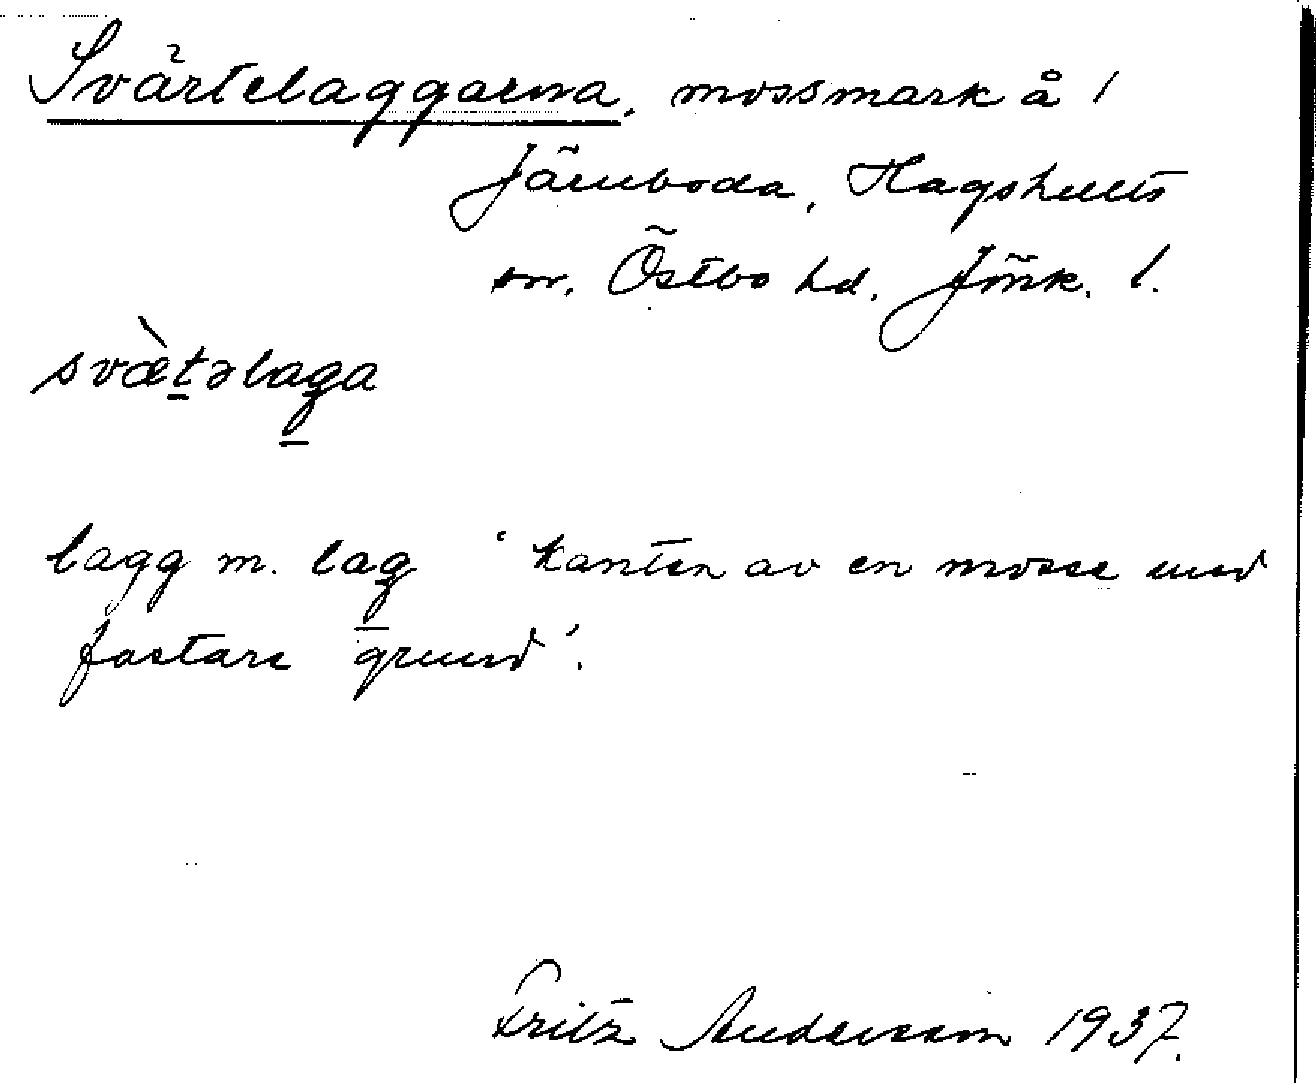 Svärtelaggarna, mossmark å 1
Järnboda, Hagshults
sn. Östbo hd. Jönk. l.
svæ̀təlaga
lagg m. lag ‘kanten av en mosse med
fastare grund’.
Fritz Andersson 1937.